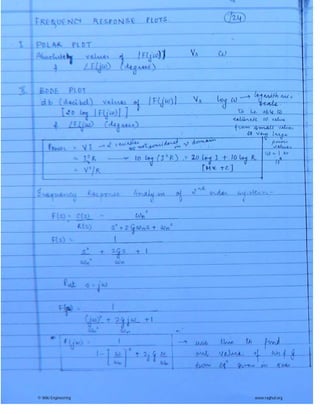 FREQUENCY RESPONSE PLOTS
I. POLAR PLOT
Absolutely values of |F(jω)| Vs ω
& ∠F(jω) (degrees)
II. BODE PLOT
db (decibel) values of |F(jω)| Vs log(ω) → logarithmic scale
[20 log |F(jω)|]
& ∠F(jω) (degrees)
to be able to
calibrate ω value
from small value
to very large
Power = VI
= I²R → 10 log (I²R) = 20 log I + 10 log R
= V²/R [Mx + C]
Frequency Response Analysis of 2nd order system-
F(s) = C(s)/R(s) = ωn²/(s² + 2ζωns + ωn²)
F(s) = 1/(s²/ωn² + 2ζs/ωn + 1)
Put s = jω
F(jω) = 1/((jω)²/ωn² + 2ζjω/ωn + 1)
* F(jω) = 1/(1 - [ω/ωn]² + 2jζ ω/ωn) → use this to find
out values of ωn & ζ
from eqn given in exam
© Wiki Engineering www.raghul.org